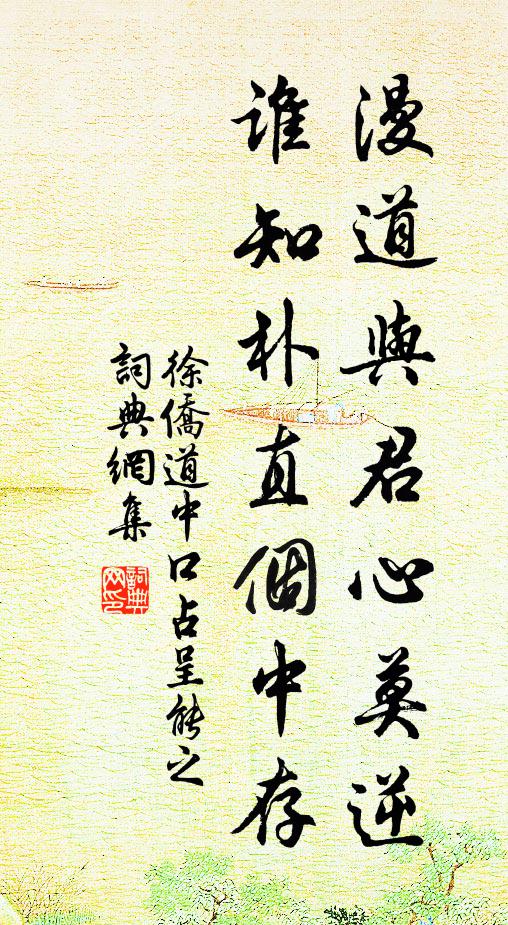 漫道與君心莫逆
誰知朴直個中存
徐僑道中口占呈能之
詞典網集
詞典网印